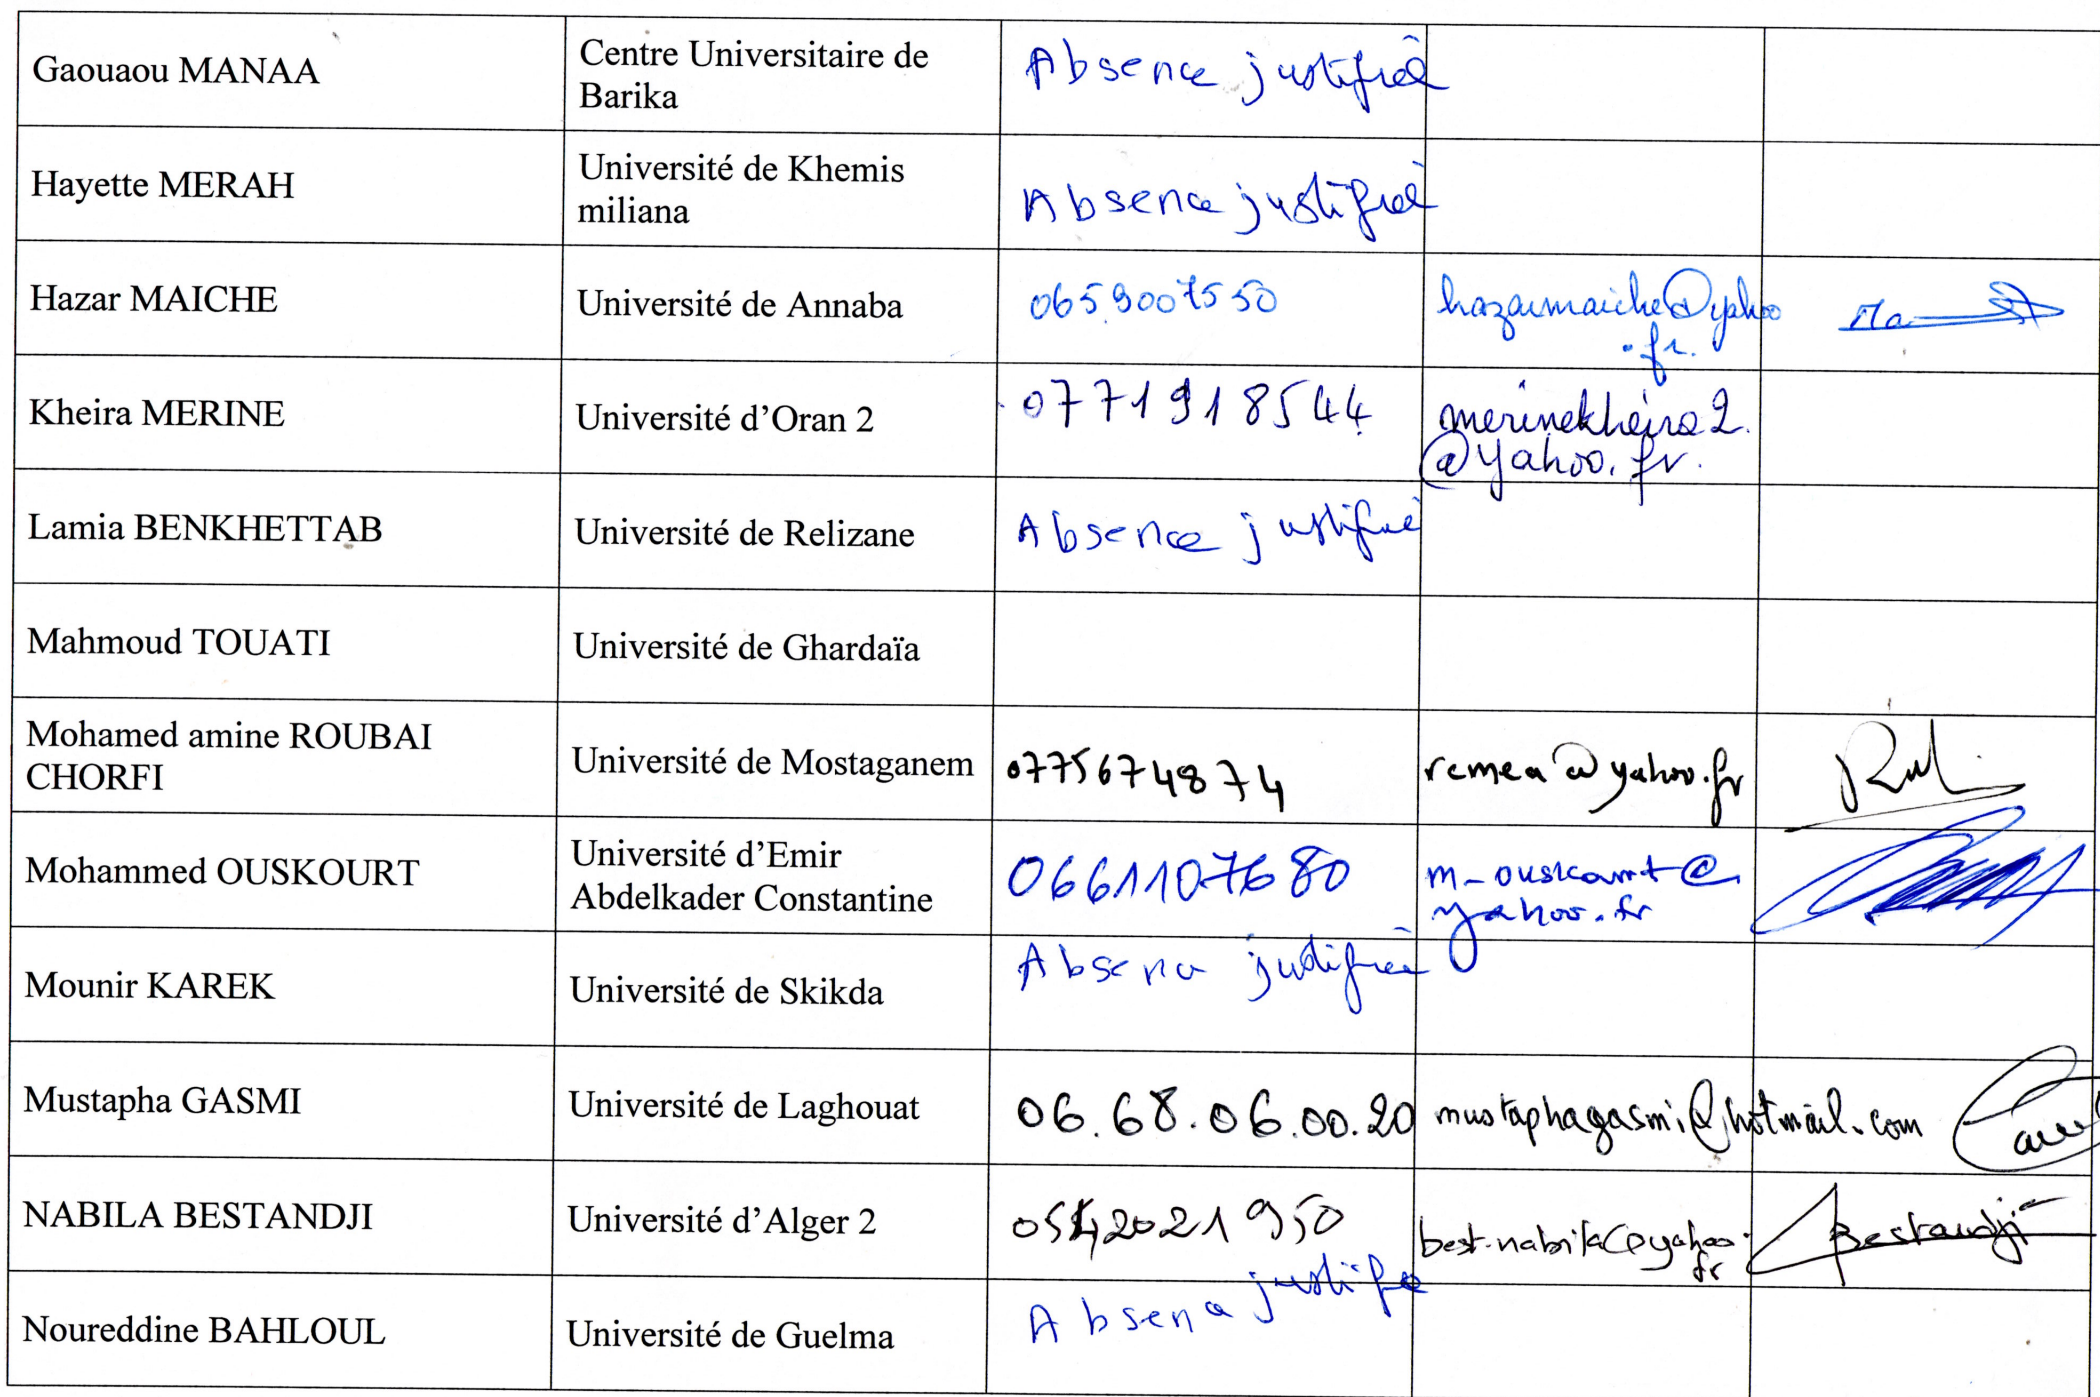 Gaouaou MANAA
Centre Universitaire de
Barika
Absence justifiée
Hayette MERAH
Université de Khemis
miliana
Absence justifiée
Hazar MAICHE
Université de Annaba
0659007550
hazarmaiche@yahoo
.fr.
Kheira MERINE
Université d’Oran 2
0771918544
merinekheira2
@yahoo.fr.
Lamia BENKHETTAB
Université de Relizane
Absence justifiée
Mahmoud TOUATI
Université de Ghardaïa
Mohamed amine ROUBAI
CHORFI
Université de Mostaganem
0775674874
rcmea@yahoo.fr
Mohammed OUSKOURT
Université d’Emir
Abdelkader Constantine
0661107680
m_ouskourt@
yahoo.fr
Mounir KAREK
Université de Skikda
Absence justifiée
Mustapha GASMI
Université de Laghouat
06.68.06.00.20
mustaphagasmi@hotmail.com
NABILA BESTANDJI
Université d’Alger 2
0542021950
best.nabila@yahoo.
fr
Bestandji
Noureddine BAHLOUL
Université de Guelma
Absence justifiée